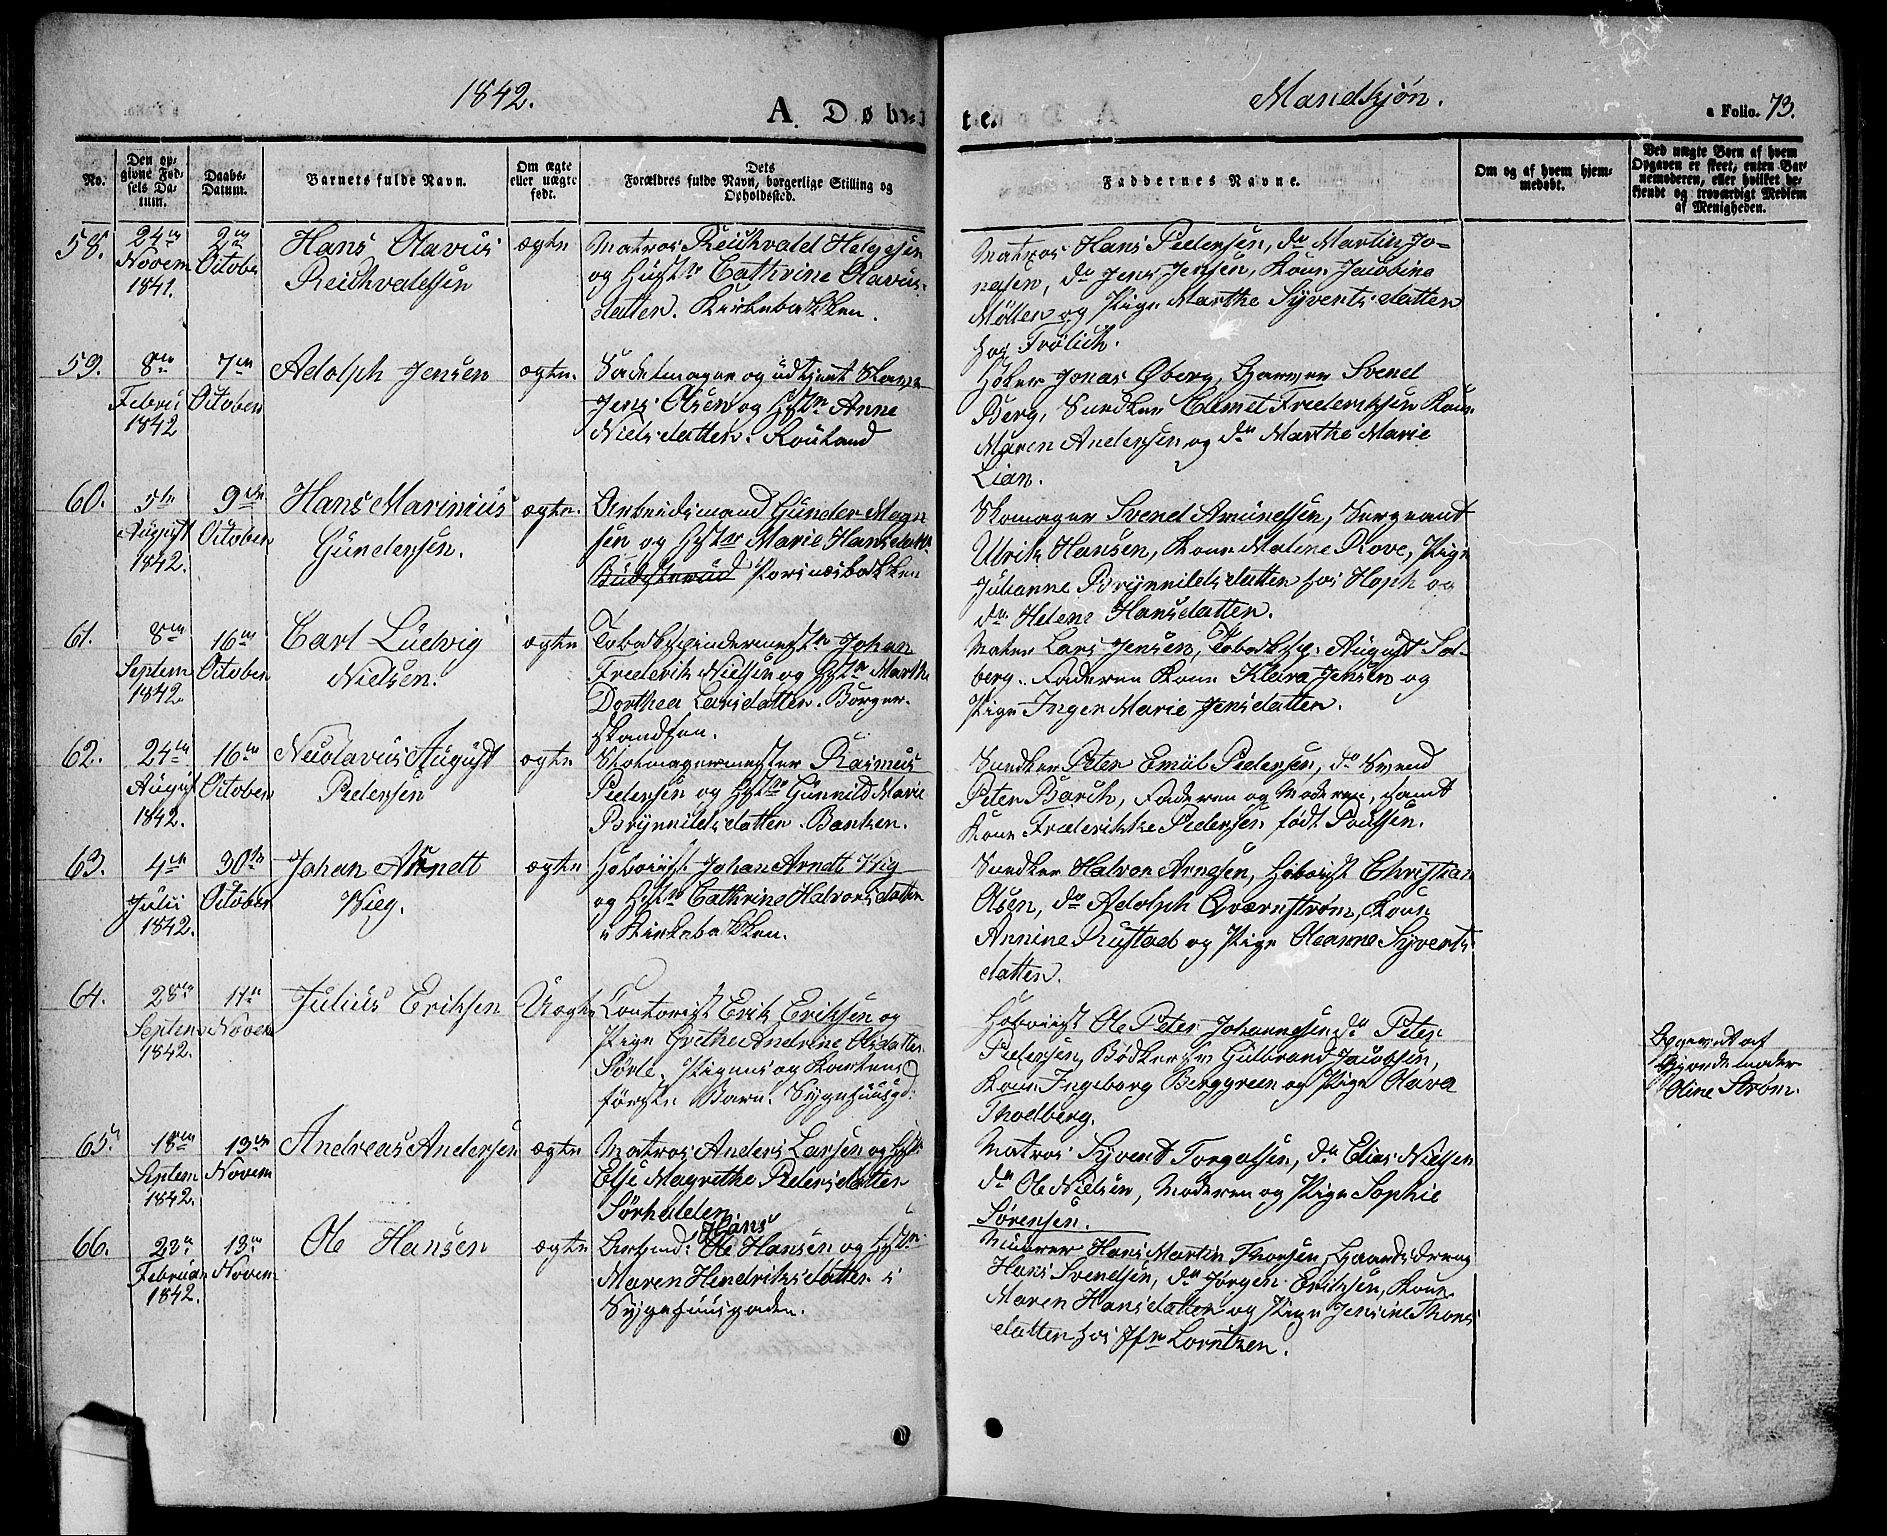 1842.
A. Døb=
te.
Mandkjøn.
a Folio. 73.
No.
Den op-
givne Fød-
sels Da-
tum.
Daabs-
Datum.
Barnets fulde Navn.
Om ægte
eller uægte
født.
Dets
Forældres fulde Navn, borgerlige Stilling og
Opholdssted.
Faddernes Navne.
Om og af hvem hjem-
medøbt.
Ved uægte Børn af hvem
Opgaven er skeet, enten Bar-
nemoderen, eller hvilket be-
kjendt og troværdigt Medlem
af Menigheden.
58.
24de
Novem
1841.
2den
October
Hans Olavus
Reichvaldsen
ægte
Matros Reichvald Helgesen
og Hustr Cathrine Olavus-
datter. Kirkebakken.
Matros Hans Pedersen, do Martin Jo-
nasen, do Jens Jensen, Kone Jacobine
Møller og Pige Marthe Syverts datter
hos Frölich.
59.
8de
Febru
1842
7de
October
Adolph Jensen
ægte.
Sadelmager og udtjent Slave
Jens Olsen og Hstr Anne
Niels datter.
Høker Jonas Øberg, Garver Svend
Berg, Snedker Clemet Frederiksen Kone
Maren Andersen og do Marthe Marie
Lian.
60.
5te
August
1842.
9de
October
Hans Marinius
Gundersen.
ægte.
Arbeidsmand Gunder Mogn
sen og Hstr Marie Hansdatt.
Skomager Svend Amundsen, Sergeant
Ulrik Hansen, Kone Malene Rove, Pige
Julianne Brynnilds datter hos Hoph og
do Helene Hansdatter.
61.
8de
Septem
1842
16de
October
Carl Ludvig
Nielsen.
ægte
Tobakspindermestr Johan
Frederik Nielsen og Hstr Marthe
Dorthea Larsdatter. Borger-
skandsen.
Maler Lars Jensen, Tobaksp. August Sol-
berg. Faderen Kone Klara Jensen og
Pige Inger Marie Jensdatter.
62.
24de
August
1842.
16de
October
Nicolavus August
Pedersen
ægte
Skomagermester Rasmus
Pedersen og Hstr Gunnild Marie
Brynnilds datter. Banken.
Snedker Peter Emil Pedersen, do Svend
Peter Barch, Faderen og Moderen, samt
Kone Frederikke Pedersen født Poulsen.
63.
4de
Julii
1842.
30te
October
Johan Arndt
Wieg.
ægte
Hoboist Johan Arndt Wig
og Hstr Cathrine Halvors datter
i Kirkebakken.
Snedker Halvor Arnesen, Hoboist Christian
Olsen, do Adolph Qværnstrøm, Kone
Annine Rustad og Pige Oleanne Syverts
datter.
64.
28de
Septem
1842.
11te
Novem
Julius Eriksen
Uægte
Contorist Erik Eriksen og
Pige Grethe Andrine Olsdatter
Pigens og Karlens
første Barn. Sygehuusgd:
Hoboist Ole Peter Johannesen do Peter
Pedersen, Bødkersv Gulbrand Jacobsen,
Kone Ingeborg Berggreen og Pige Olava
Thoelberg.
Opgivet af
Gjordemoder
Oline Strøm.
65.
18de
Septem
1842.
13de
Novem
Andreas Andersen
ægte
Matros Anders Larsen og Hst
Else Magrethe Peders datter
Sørhalden
Matros Syvert Torgalsen, do Elias Nielsen
do Ole Nielsen, Moderen og Pige Sophie
Sørensen.
66.
23de
Februar
1842.
13de
Novem
Ole Hansen
ægte
Arbmd: Ole Hans Hansen og Hstr
Maren Hendriks datter i
Sygehuusgaden.
Murer Hans Martin Thorsen, Gaardsdreng
Hans Svendsen, do Jørgen Eriksen, Kone
Maren Hansdatter og Pige Jensine Thors
datter hos Jfr Lorntzen.